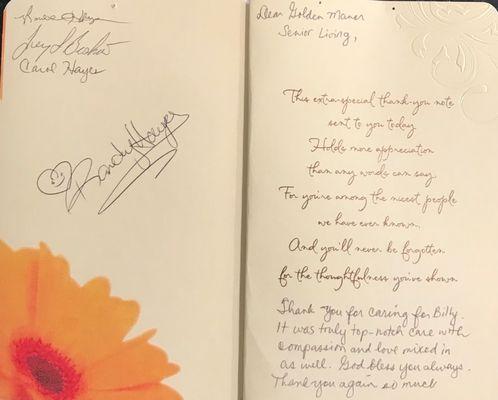 Hayes
Carol Hayes
Randy Hayes
Dear Golden Manor
Senior Living,
This extra-special thank-you note
sent to you today
Holds more appreciation
than any words can say.
For you're among the nicest people
we have ever known,
And you'll never be forgotten
for the thoughtfulness you've shown.
Thank you for caring for Billy.
It was truly top-notch care with
compassion and love mixed in
as well. God bless you always.
Thank you again so much